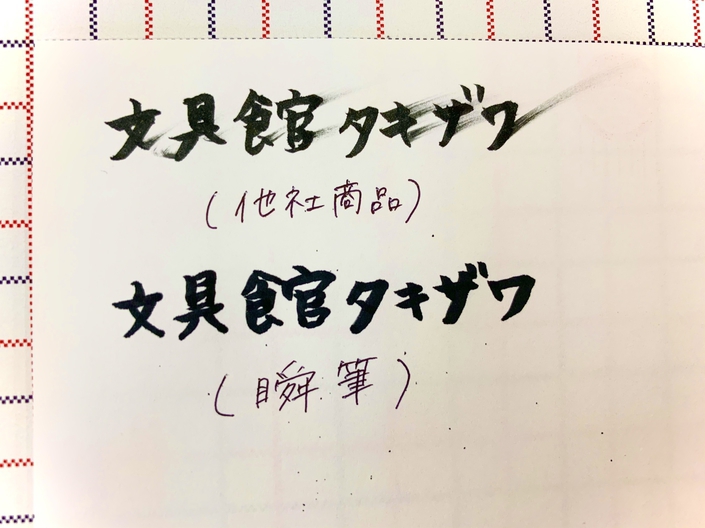 文具館タキザワ
(他社商品)
文具館タキザワ
(瞬筆)